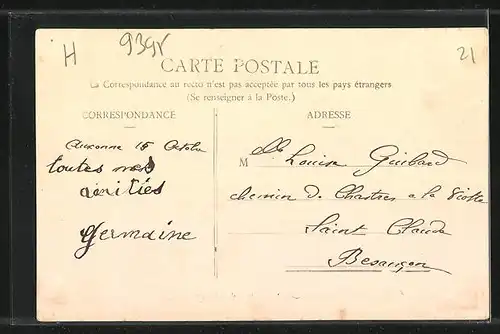 H 939r 21
CARTE POSTALE
La Correspondance au recto n'est pas acceptée par tous les pays étrangers
(Se renseigner à la Poste.)
CORRESPONDANCE
ADRESSE
Auxonne 15 Octobre
toutes mes
amitiés
Germaine
M lle Louise Guibard
chemin de Chastres a la
Saint Claude
Besançon